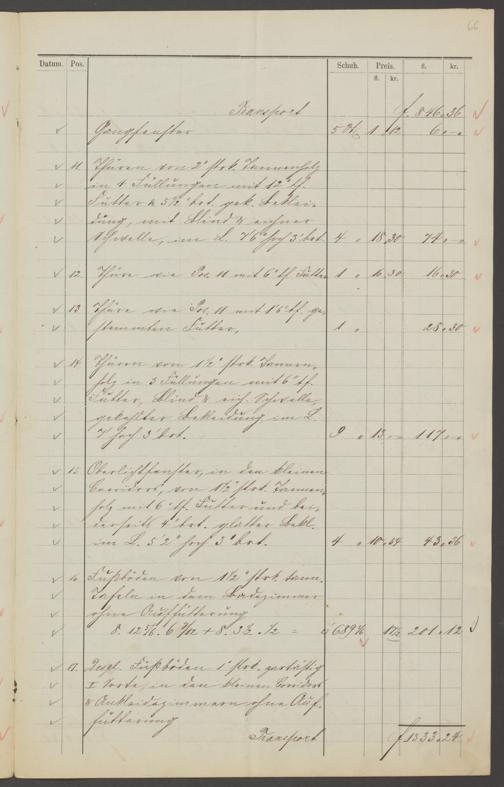 66
Datum. Pos. Schuh. Preis. fl. kr.
fl. kr.
Transport f. 846 „ 36
Gangfenster 5 1 12 6 „ –
11. Thüren von 2" strk. Tannenholz
in 4 Füllungen mit 12" tf.
Futter & 5½" brt. gek. Beklei-
dung, mit Blind & eichner
Schwelle, im L. 7'6" hoch 3' brt. 4 „ 18 30 74 „ –
12. Thüre wie Pos. 11 mit 6" tf. Futter 1 „ 16 30 16 „ 30
13. Thüre wie Pos. 11 mit 1'6" tf. ge-
stemmten Futter, 1 „ 28 „ 30
14. Thüren von 1½" strk. Tannen-
holz in 3 Füllungen mit 6" tf.
Futter, Blind & eich. Schwelle,
gekehlter Bekleidung im L.
7' hoch 3' brt. 9 „ 13 – 117 „ –
15. Oberlichtfenster, in den kleinen
Corridors, von 1½" strk. Tannen-
holz mit 6" tf. Futter und bei-
derseits 4" brt. glatter Bekl.
im L. 5'2" hoch 3' brt. 4 „ 10 „ 54 43 „ 36
16. Fußböden von 1½" strk. tann.
Tafeln in dem Badezimmer
ohne Auffütterung
201 „ 12
17. Desgl. Fußböden 1" strk.
I Sorte, in den kleinen Corridors
& Ankleidezimmern ohne Auf-
fütterung
Transport f. 1333 „ 24